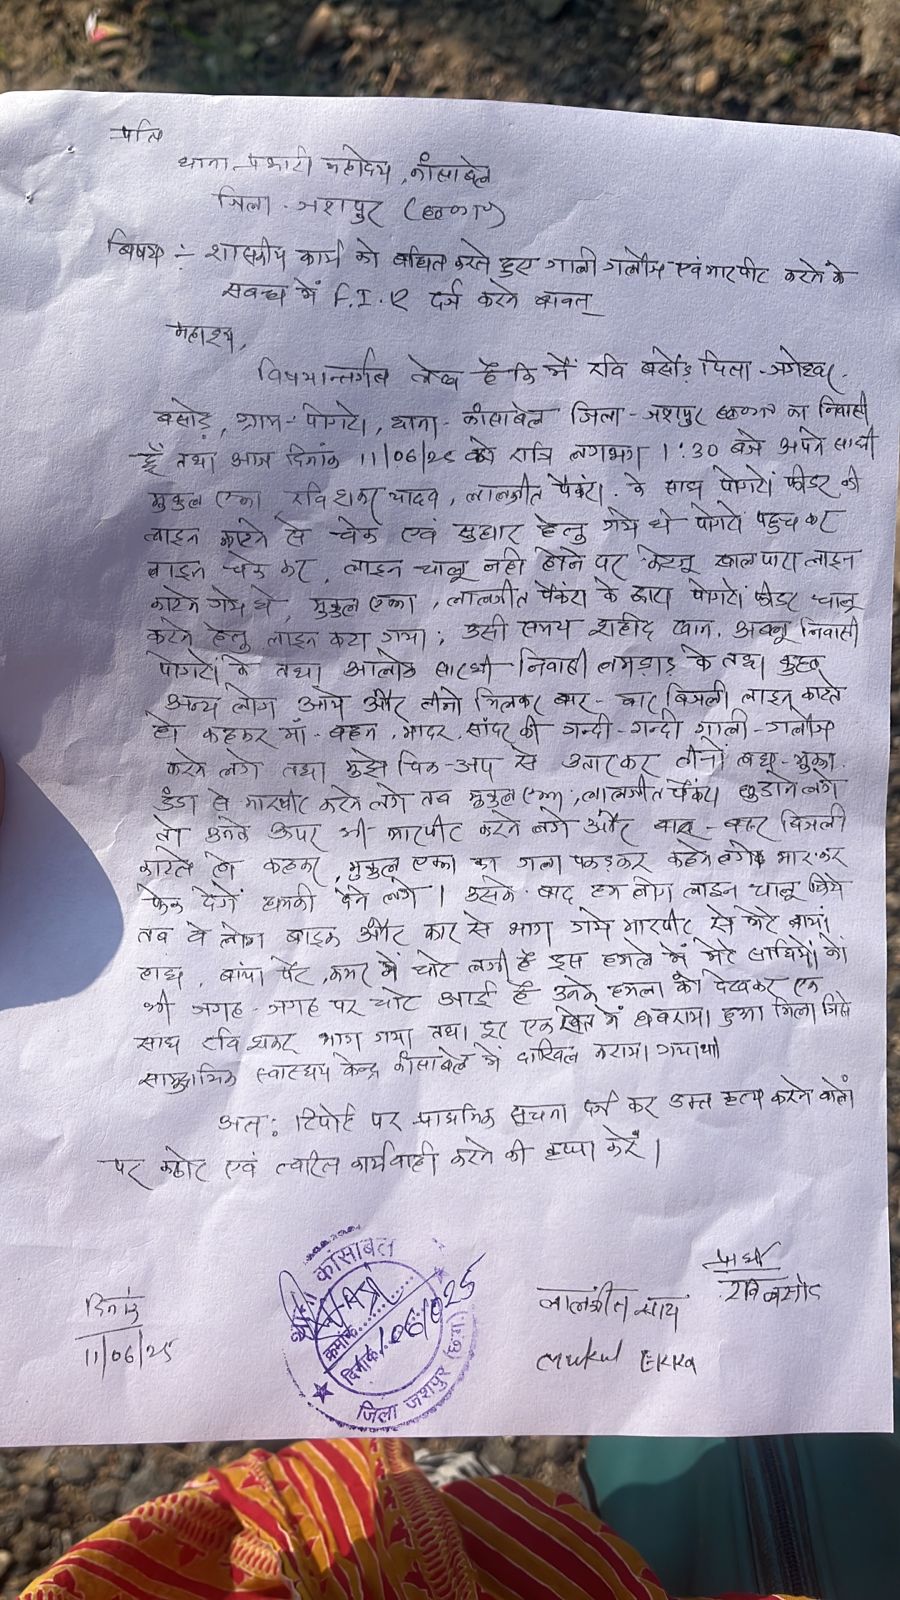 प्रति
थाना प्रभारी महोदय, काँसाबेल
जिला - जशपुर (छ०ग०)
विषय :- शासकीय कार्य को बाधित करते हुए गाली गलौज एवं मारपीट करने के
सबन्ध में F.I.R दर्ज करने बाबत्
महाशय,
विषयान्तर्गत लेख है कि मैं रवि बसोड़ पिता - जगेश्वर
बसोड़, ग्राम - पोंगरो, थाना - काँसाबेल जिला - जशपुर छ०ग० का निवासी
हूँ तथा आज दिनांक 11/06/25 को रात्रि लगभग 1:30 बजे अपने साथी
मुकुल एक्का रविशंकर यादव, लालजीत पैंकरा के साथ पोंगरो फीडर की
लाइन काटने से चेक एवं सुधार हेतु गये थे पोंगरो पहुच कर
लाइन चेक कर, लाइन चालू नही होने पर खालपारा लाइन
काटने गये थे, मुकुल एक्का, लालजीत पैंकरा के द्वारा पोंगरो फीडर चालू
करने हेतु लाइन काटा गया; उसी समय शहीद खान, अब्लू निवासी
पोंगरो के तथा आलोक सारथी निवासी के तथा कुछ
अन्य लोग आये और तीनो मिलकर बार - बार बिजली लाइन काटते
हो कहकर माँ - बहन, मादर की गन्दी - गन्दी गाली - गलौज
करने लगे तथा मुझे पिक - अप से उतारकर तीनों मुक्का
डंडा से मारपीट करने लगे तब मुकुल एक्का, लालजीत पैंकरा छुड़ाने लगे
तो उनके ऊपर भी मारपीट करने लगे और बार - बार बिजली
काटते हो कहकर, मुकुल एक्का का गला पकड़कर कहने लगे मार कर
फेक देगें धमकी देने लगे। उसके बाद हम लोग लाइन चालू किये
तब वे लोग बाइक और कार से भाग गये मारपीट से मेरे बायां
हाथ, बांया पैर, कमर में चोट लगी है इस हमले में मेरे साथियों को
भी जगह - जगह पर चोट आई है उनके हमला को देखकर एक
साथ रविशंकर भाग गया तथा दूर एक खेत में घबराया हुआ मिला जिसे
सामुदायिक स्वास्थ्य केन्द्र काँसाबेल में दाखिल कराया गया था।
अतः रिपोर्ट पर प्राथमिक सूचना दर्ज कर उक्त कृत्य करने वालों
पर कठोर एवं त्वरित कार्यवाही करने की कृपा करें।
दिनांक
11/06/25
थाना कांसाबेल
क्रमांक
दिनांक 1/06/2025
जिला जशपुर (छ.ग.)
प्रार्थी
रवि बसोड़
लालजीत साय
Mukul Ekka